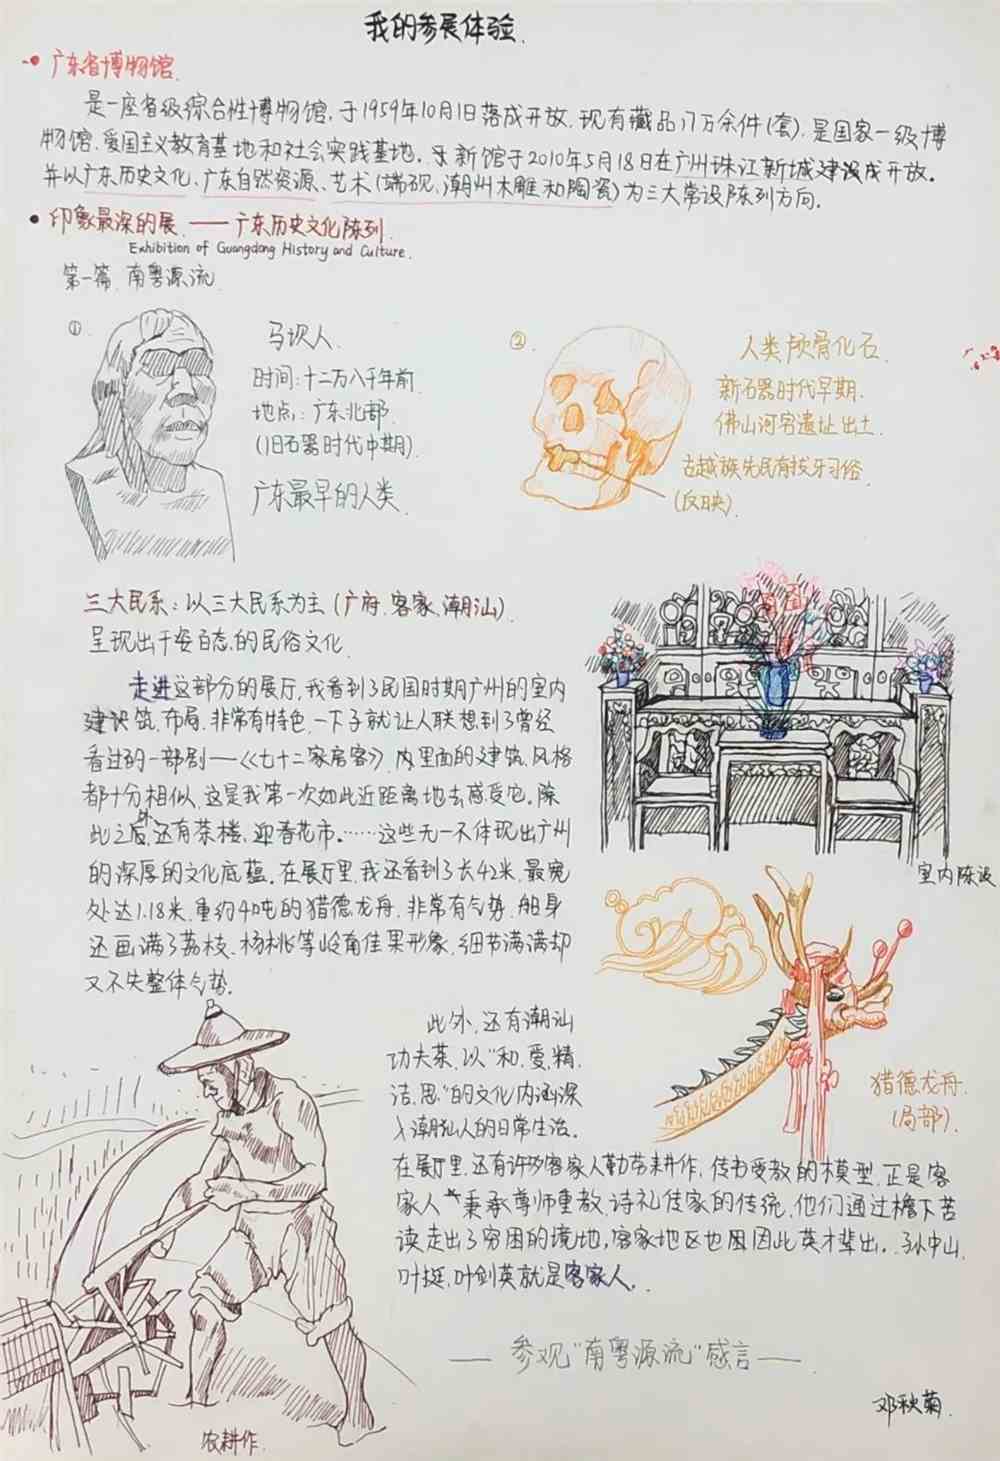 我的参展体验.
广东省博物馆.
是一座省级综合性博物馆,于1959年10月1日落成开放.现有藏品17万余件(套).是国家一级博
物馆.爱国主义教育基地和社会实践基地. 新馆于2010年5月18日在广州珠江新城建设成开放.
并以广东历史文化、广东自然资源、艺术(端砚,潮州木雕和陶瓷)为三大常设陈列方向.
印象最深的展.——广东历史文化陈列.
Exhibition of Guangdong History and Culture.
第一篇.南粤源流
①.
马坝人.
时间:十二万八千年前.
地点:广东北部.
(旧石器时代中期).
广东最早的人类.
②.
人类颅骨化石.
新石器时代早期.
佛山河宕遗址出土.
古越族先民有拔牙习俗.
(反映).
三大民系:以三大民系为主(广府.客家.潮汕).
呈现出千姿百态的民俗文化.
走进这部分的展厅,我看到了民国时期广州的室内
建筑.布局.非常有特色.一下子就让人联想到了曾经
看过的一部剧——《七十二家房客》.内里面的建筑.风格
都十分相似.这是我第一次如此近距离地去感受它.除
此之外,还有茶楼,迎春花市.……这些无一不体现出广州
的深厚的文化底蕴.在展厅里.我还看到了长42米.最宽
处达1.18米.重约40吨的猎德龙舟.非常有气势.船身
还画满了荔枝、杨桃等岭南佳果形象.细节满满却
又不失整体气势.
室内陈设
猎德龙舟.
(局部).
此外,还有潮汕
功夫茶.以"和.爱.精.
洁.思"的文化内涵深
入潮汕人的日常生活.
在展厅里.还有许多客家人勤劳耕作.传书受教的模型.正是客
家人秉承尊师重教.诗礼传家的传统.他们通过檐下苦
读走出了穷困的境地,客家地区也因此英才辈出.孙中山.
叶挺,叶剑英就是客家人.
——参观"南粤源流"感言——
农耕作.
邓秋菊.